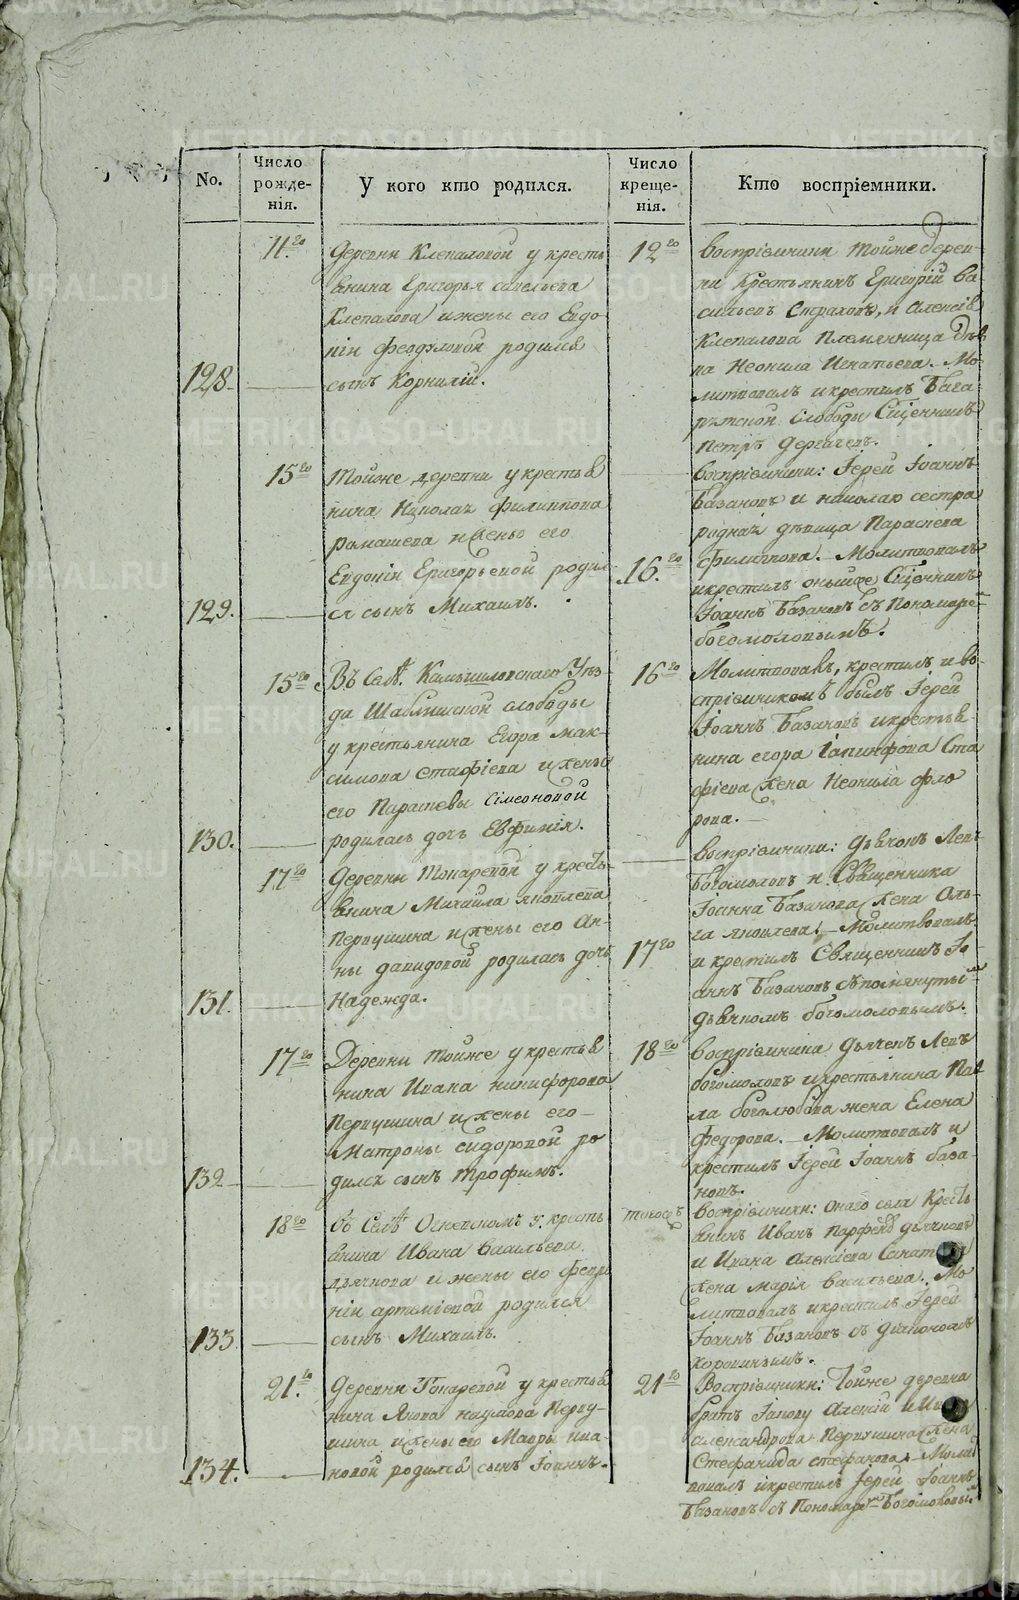 No.
Число рожде-нія.
У кого кто родился.
Число креще-нія.
Кто воспріемники.
128.
11.го
Деревни Клепаловой у кресть
янина Григорья савельева
Клепалова и жены его Евдо
кіи феодуловой родился
сынъ Корнилій.
12го
воспріемники тойже дерев-
ни Крестьянинъ Григорій ва
сильевъ Страховъ, и Алексія
Клепалова Племянница дѣв
ка Неонила Игнатьева. Мо-
литвовалъ и крестилъ Бага-
рятской Слободы Сщенникъ
Петръ Дергачевъ.
129.
15го
Тойже деревни у крестья
нина Николая Филиппова
ромашева и жены его
Евдокіи Григорьевой родил
ся сынъ Михаилъ.
16.го
воспріемники: Іерей Іоаннъ
Базановъ и николаю сестра
родная дѣвица Параскева
Филиппова. Молитвовалъ
и крестилъ онъ же Сщенникъ
Іоаннъ Базановъ съ Пономаремъ
богомоловымъ.
130.
15го
Въ Селѣ. Камышловскаго Уѣз-
да Шаблишской слободы
у крестьянина Егора Мак-
симова стафіева и жены
его Параскевы Симеоновой
родилась дочь Евфимія.
16го
Молитвовавъ, крестилъ и во-
спріемникомъ былъ Іерей
Іоаннъ Базановъ и крестья-
нина егора Іакинфова Ста
фіева жена Неонила фло
рова.
131.
17го
Деревни Токаревой у кресть
янина Михаила яковлева
Первушина и жены его Ан-
ны давидовой родилась дочь
Надежда.
17го
воспріемники: Дьячокъ Левъ
Богомоловъ и Священника
Іоанна Базанова жена Оль-
га яковлева. Молитвовалъ
и крестилъ Священникъ Іо-
аннъ Базановъ съ помянутымъ
дьячкомъ богомоловымъ.
132
17го
Деревни тойже у крестья
нина Ивана никифорова
Первушина и жены его
Матроны сидоровой ро
дился сынъ трофимъ.
18го
воспріемники дьячекъ Левъ
богомоловъ и крестьянина Пав
ла боголюбова жена Елена
Федорова. Молитвовалъ и
крестилъ Іерей Іоаннъ база-
новъ.
133
18го
въ Селѣ Огневскомъ у кресть
янина Ивана Васильева
дьячкова и жены его Февро
ніи артеміевой родился
сынъ Михаилъ.
тогожъ
воспріемники: онаго села Кресть
янинъ Иванъ Парфеновъ дьячковъ
и Ивана Алексіева
жена марія васильева. Мо
литвовалъ и крестилъ Іерей
Іоаннъ Базановъ съ Дьякономъ
коровинымъ.
134.
21.го
Деревни Токаревой у крестья
нина Якова наумова Перву-
шина и жены его Мавры ива-
новой родился сынъ Іоаннъ.
21го
Воспріемники: тойже деревни
братъ Іакову Алексій и
александрова Первушина жена
Стефанида стефанова. Моли
вовалъ и крестилъ Іерей Іоаннъ
Базановъ съ Пономаремъ Богомоловымъ